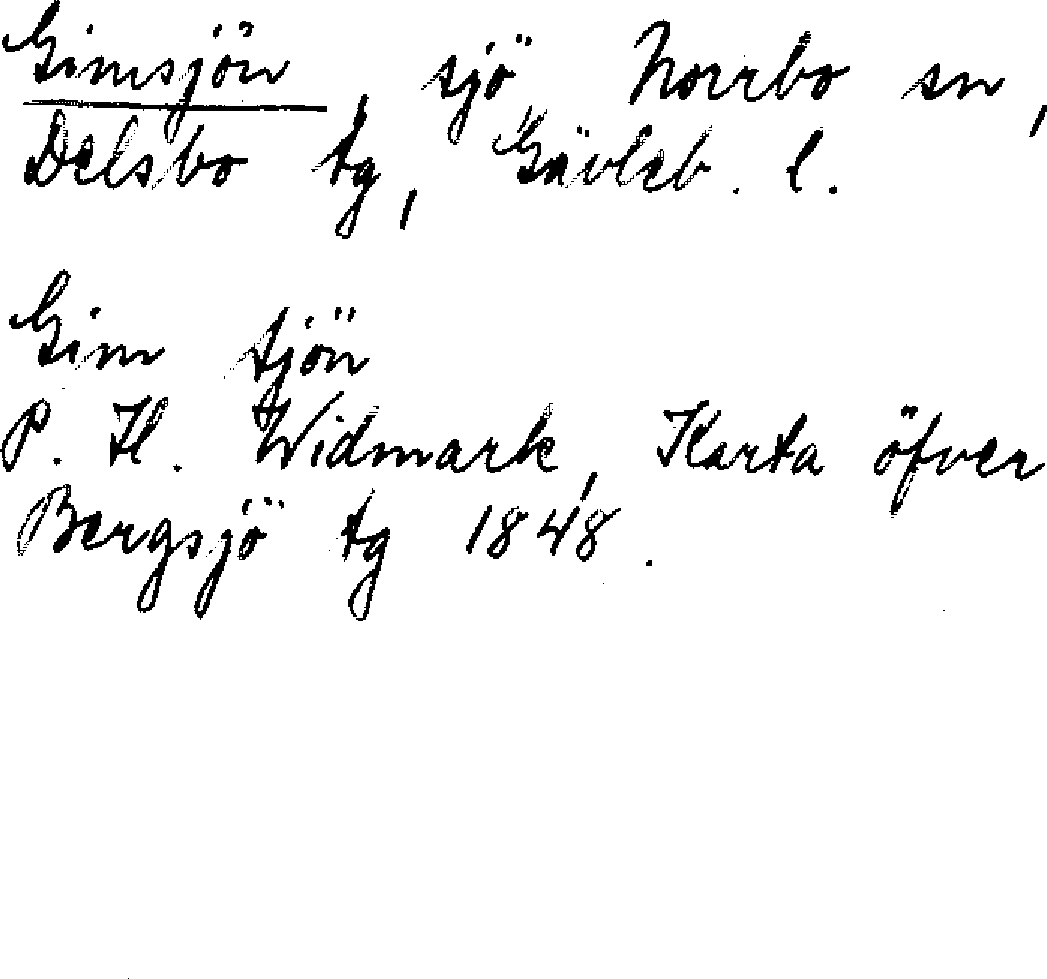 Gimsjön, sjö, Norrbo sn,
Delsbo tg, Gävleb. l.
Gim tjön
P. H. Widmark, Karta öfver
Bergsjö tg 1848.